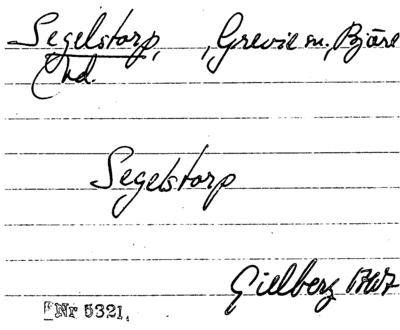 Segelstorp, , Grevie sn, Bjäre
Chd.
Segelstorp
Gillberg
Nr 5321.